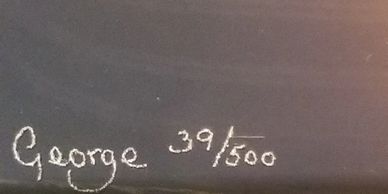 George 39/500